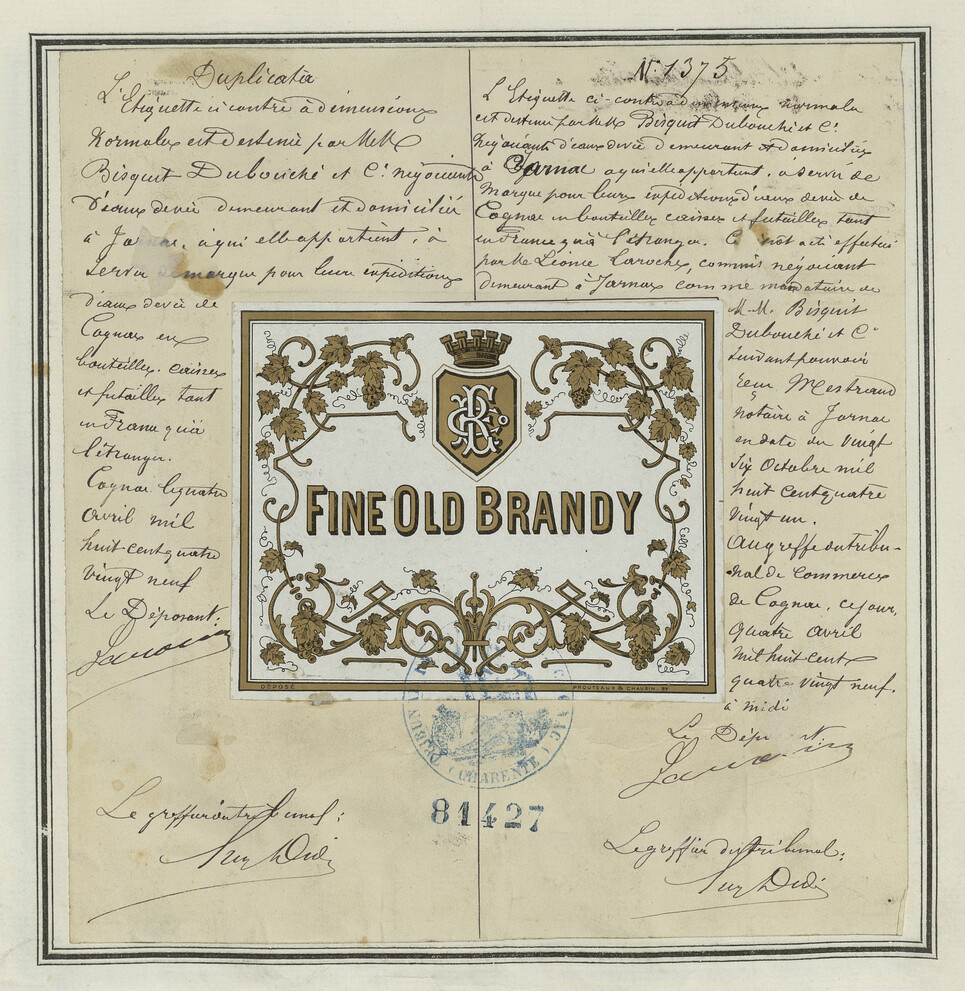 Duplicata
L'Etiquette ci contre à dimensions
Normales est destinée par MM
Bisquit Dubouché et Cie négociants
d'eaux de vie demeurant et domiciliés
à Jarnac, à qui elle appartient, à
servir de marque pour leurs expéditions
d'eaux de vie de
Cognac en
bouteilles, caisses
et futailles tant
en France qu'à
l'étranger.
Cognac le quatre
avril mil
huit cent quatre
vingt neuf
Le Déposant:
Le greffier du tribunal:
N° 1375
L'Etiquette ci-contre à dimensions normales
est destinée par MM Bisquit Dubouché et Cie
Négociants d'eaux de vie demeurant et domiciliés
à Jarnac à qui elle appartient, à servir de
Marque pour leurs expéditions d'eaux de vie de
Cognac en bouteilles caisses et futailles tant
en France qu'à l'étranger. Ce dépôt a été effectué
par M Léonce Laroche, commis négociant
demeurant à Jarnac comme mandataire de
M.M. Bisquit
Dubouché et Cie
suivant pouvoir
reçu Mestreaud
notaire à Jarnac
en date du vingt
six Octobre mil
huit cent quatre
vingt un.
Au greffe du tribu-
nal de commerce
de Cognac, ce jour,
quatre avril
mil huit cent
quatre vingt neuf,
à midi
Le Déposant
Le greffier du tribunal:
FINE OLD BRANDY
DÉPOSÉ
PROUTEAUX & CHAUSIN, PY
CHARENTE
81427